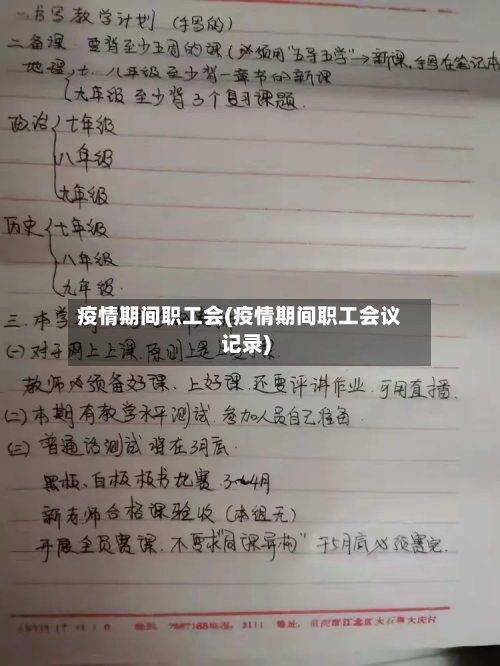 一.书写教学计划 (手写的)
二.备课 要背至少五周的课 (必须用"五导五学"→新课,手写在笔记本
地理,七.八年级至少背一章节的新课
九年级至少背3个复习课题.
政治 七年级
八年级
九年级
历史 七年级
八年级
九年级.
疫情期间职工会(疫情期间职工会议
记录)
三.本学
(一)对于网上上课,原则上是上
教师必须备好课.上好课.还要评讲作业.可用直播.
(二)本期有教学水平测试.参加人员自己准备.
(三)普通话测试将在3月底.
黑板、白板板书比赛.3~4月
新老师合格课验收(本组元)
开展全员赛课.不要求"同课异构"于5月底必须赛完.